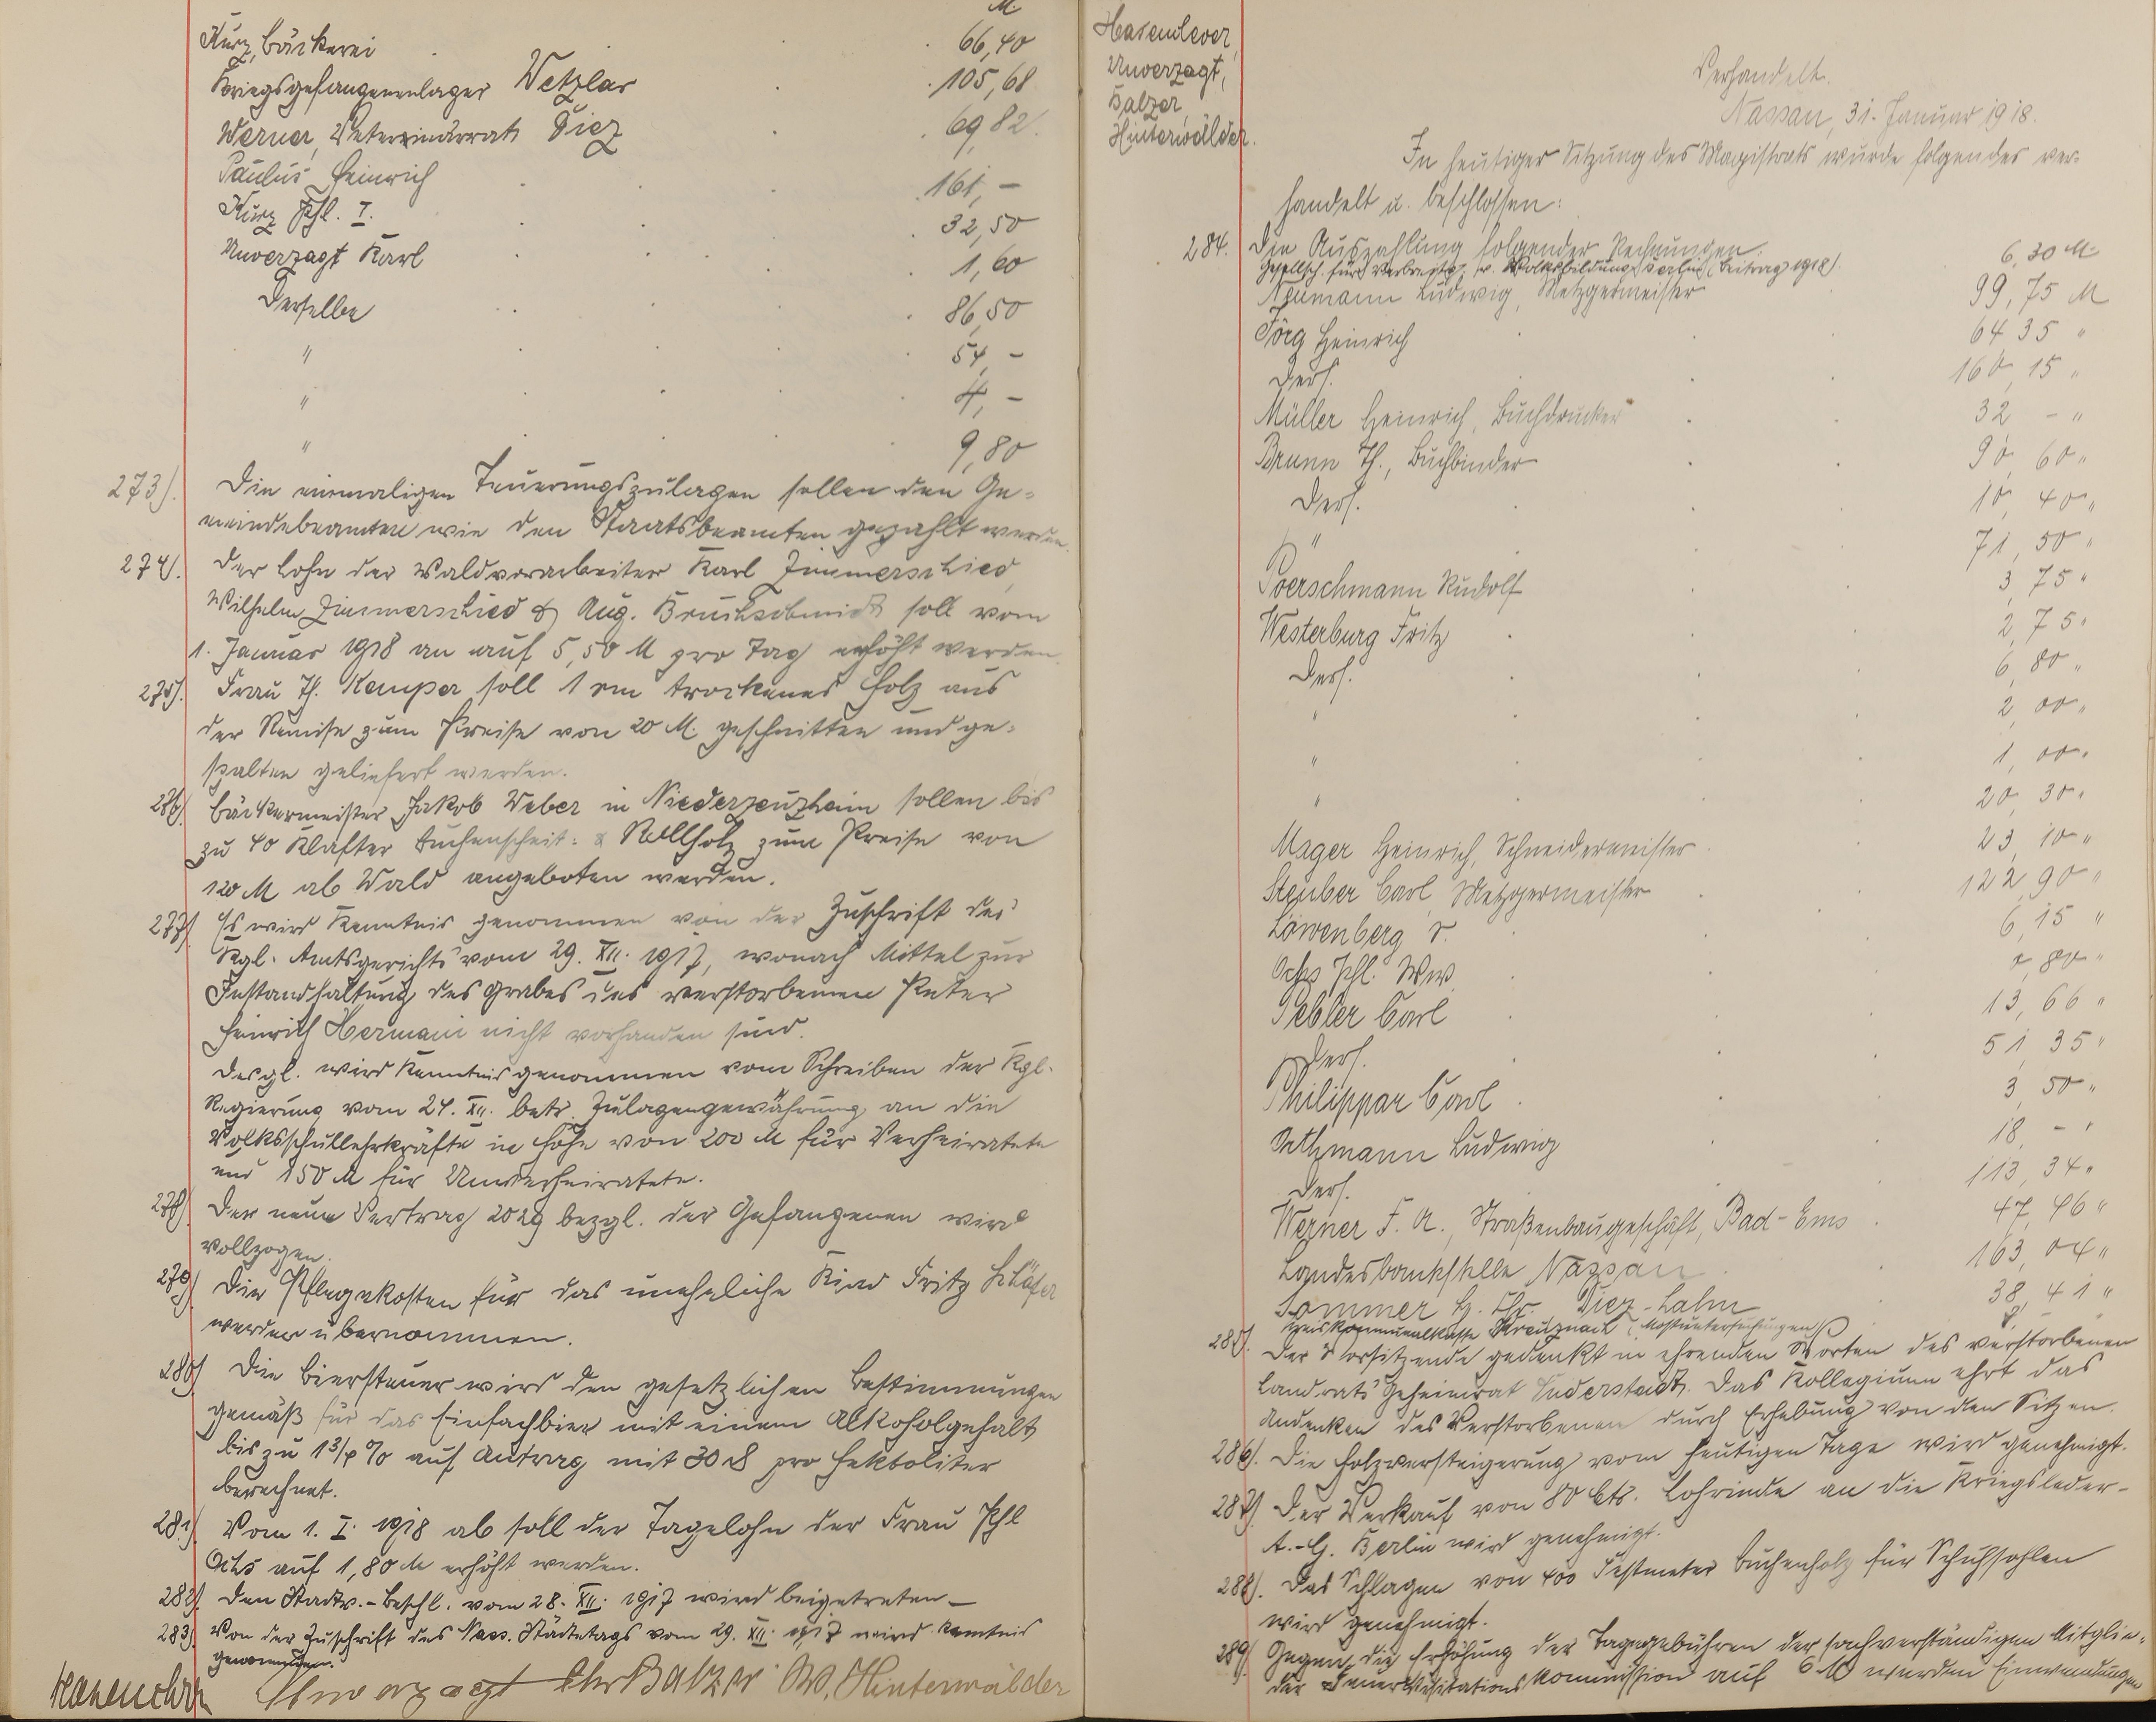 M.
Kurz, Bäckerei 66,40
Kriegsgefangenenlager Wetzlar 105,68
Werner, Veterinärrat Diez 69,82
Paulus Heinrich 161,–
Kurz Phl. I. 32,50
Unverzagt Karl 1,60
Derselbe 86,50
" 54,–
" 4,–
" 9,80
273). Die einmaligen Teuerungszulagen sollen den Ge=
meindebeamten wie den Staatsbeamten gezahlt werden.
274). Der Lohn der Waldvorarbeiter Karl Zimmerschied,
Wilhelm Zimmerschied & Aug. Bruchschmidt soll vom
1. Januar 1918 an auf 5,50 M pro Tag erhöht werden.
275). Frau Th. Kemper soll 1 rm trockenes Holz aus
der Remise zum Preise von 20 M. geschnitten und ge=
spalten geliefert werden.
276) Bäckermeister Jakob Weber in Niederzeuzheim sollen bis
zu 40 Klafter Buchenscheit= & Rollholz zum Preise von
120 M ab Wald angeboten werden.
277) Es wird Kenntnis genommen von der Zuschrift des
Kgl. Amtsgerichts vom 29. XII. 1917, wonach Mittel zur
Instandhaltung des Grabes des verstorbenen Peter
Heinrich Hermani nicht vorhanden sind.
Desgl. wird Kenntnis genommen vom Schreiben der Kgl.
Regierung vom 24. XII. betr. Zulagengewährung an die
Volksschullehrkräfte in Höhe von 200 M für Verheiratete
und 150 M für Unverheiratete.
278) Der neue Vertrag 2029 bezgl. der Gefangenen wird
vollzogen.
279) Die Pflegekosten für das uneheliche Kind Fritz Schäfer
werden übernommen.
280) Die Biersteuer wird den gesetzlichen Bestimmungen
gemäß für das Einfachbier mit einem Alkoholgehalt
bis zu 1¾ % auf Antrag mit 30 ₰ pro Hektoliter
berechnet.
281) Vom 1. I. 1918 ab soll der Tagelohn der Frau Phl
Ochs auf 1,80 M erhöht werden.
282). Den Stadtv.-Beschl. vom 28. XII. 1917 wird beigetreten –
283) Von der Zuschrift des Nass. Städtetags vom 29. XII. 1917 wird Kenntnis
genommen.
Hasenclever Unverzagt Chr Balzer W. Hinterwälder
Hasenclever,
Unverzagt,
Balzer,
Hinterwälder.
Verhandelt.
Nassau, 31. Januar 1918.
In heutiger Sitzung des Magistrats wurde folgendes ver-
handelt u. beschlossen:
284. Die Auszahlung folgender Rechnungen:
Gesellsch. für Verbreitg. v. Volksbildung, Berlin (Beitrag 1918). 6,30 M
Neumann Ludwig, Metzgermeister 99,75 M
Jörg Heinrich 64,35 "
Ders. 160,15 "
Müller Heinrich, Buchdrucker 32 – "
Brunn Th., Buchbinder 90,60 "
Ders. 10,40 "
" 71,50 "
Poerschmann Rudolf 3,75 "
Westerburg Fritz 2,75 "
Ders. 6,80 "
" 2,00 "
" 1,00 "
" 20,30 "
Mager Heinrich, Schneidermeister 23,10 "
Steuber Carl Metzgermeister 122,90 "
Löwenberg S. 6,15 "
Ochs Phl. Ww. 0,80 "
Pebler Carl 13,66 "
Ders. 51,35 "
Philippar Carl 3,50 "
Rethmann Ludwig 18,– "
Ders. 113,34 "
Werner F. A., Straßenbaugeschäft, Bad-Ems 47,46 "
Landesbankstelle Nassau 163,04 "
Sommer H. Chr. Diez-Lahn 38,41 "
Kreiskommunalkasse Kreuznach (Mostuntersuchungen)
285). Der Vorsitzende gedenkt in ehrenden Worten des verstorbenen
Landrats Geheimrat Duderstadt. Das Kollegium ehrt das
Andenken des Verstorbenen durch Erhebung von den Sitzen.
286). Die Holzversteigerung vom heutigen Tage wird genehmigt.
287) Der Verkauf von 80 Ctr. Lohrinde an die Kriegsleder-
A.-G. Berlin wird genehmigt.
288). Das Schlagen von 400 Festmeter Buchenholz für Schuhsohlen
wird genehmigt.
289) Gegen die Erhöhung der Tagegebühren der sachverständigen Mitglie=
der Feuervisitationskommission auf 6 M werden Einwendungen